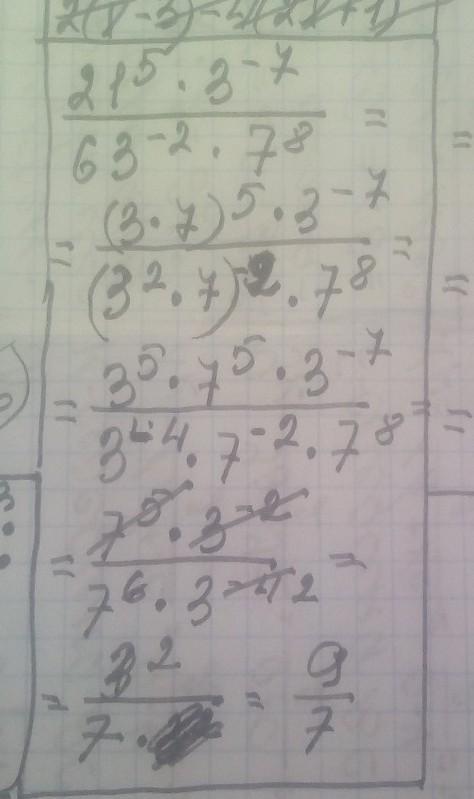 2(x-3)-4(2x+1)
21⁵ · 3⁻⁷
63⁻² · 7⁸ =
= (3·7)⁵ · 3⁻⁷
(3²·7)⁻² · 7⁸ =
= 3⁵ · 7⁵ · 3⁻⁷
3⁻⁴ · 7⁻² · 7⁸ =
= 7⁵ · 3⁻²
7⁶ · 3⁻⁴ 2 =
= 3² / 7 · = 9 / 7